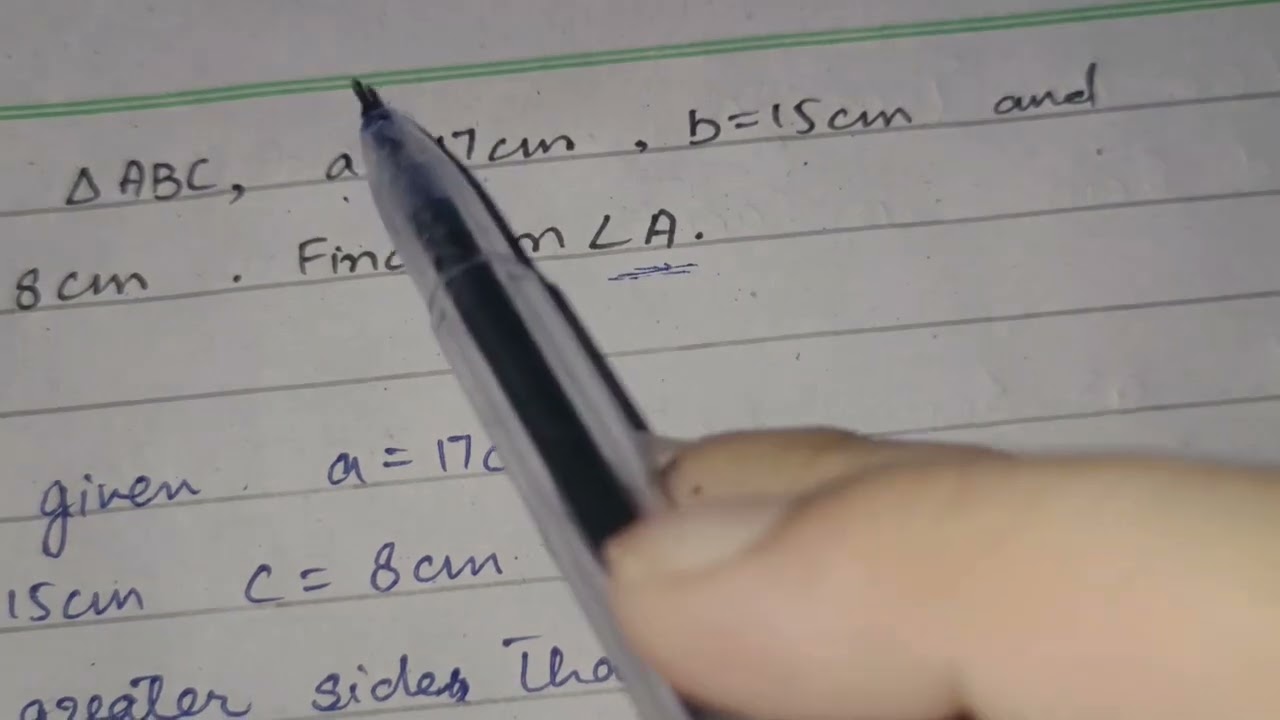 △ABC, a 17cm, b=15cm and
8cm. Find m∠A.
given a=17c
15cm c=8cm
greater sides Tha